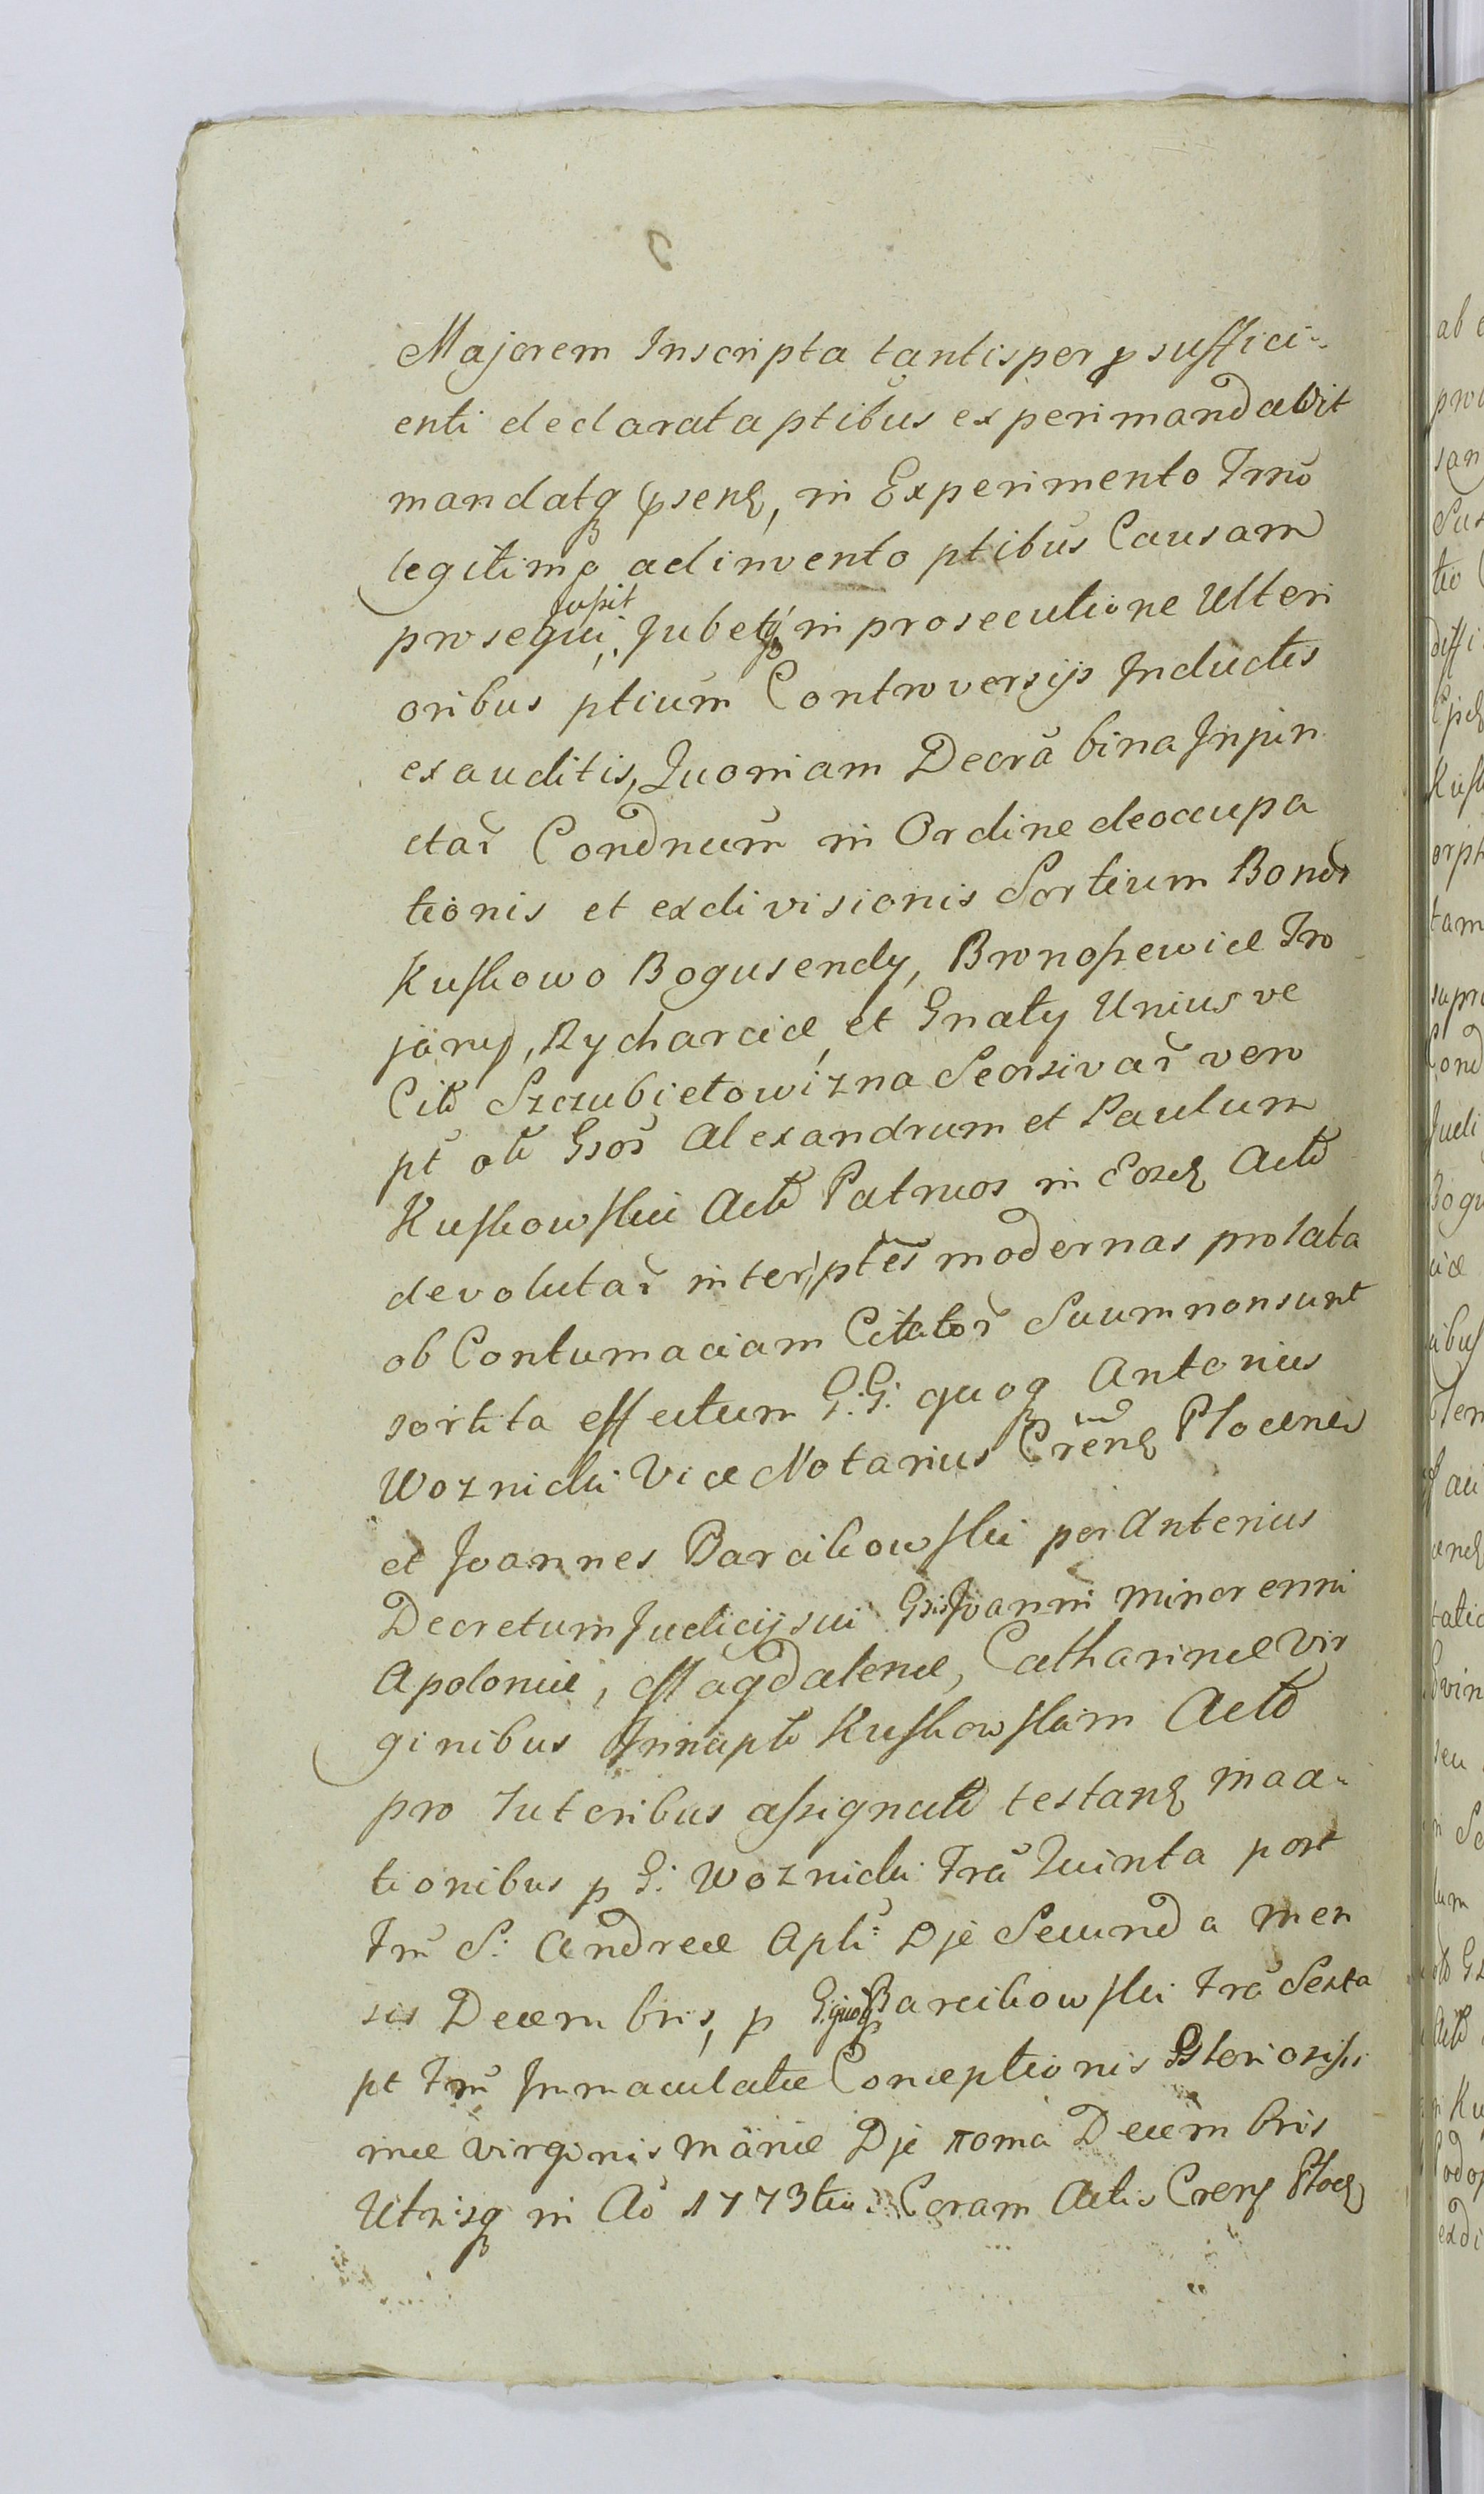 Majorem Inscripta tantisper p suffici-
enti declarata ptibus experimandavit
mandatq psenꝫ, in Experimento Trnõ
legitimo adinvento ptibus Causam
prosequi jussit, Jubetq in prosecutione Ulteri
oribus ptium Controversijs Inductis
exauditis, Quoniam Decra bina Inpin
ctar Condnum in Ordine deoccupa
tionis et exdivisionis Sortium Bonor
Kuskowo Bogusendy, Bronoszewice Tro
jany, Rycharcice, et Gnaty Unius ve
Citd Szczubietowizna Seorsivar vero
pt olt Gsos Alexandrum et Paulum
Kuskowskii Actd Patruos in Eosdꝫ Actd
devolutar inter ptes modernas prolata
ob Contumaciam Citator Suum non sunt
sortita effectum G:G: quoq Antonius
Woznicki Vice Notarius Crenꝫ Plocenū
et Joannes Barcikowski per Anterius
Decretum Judicij sui Gsis Joanni minorenni
Apoloniæ, Magdalenæ, Catharinæ Vir
ginibus Innupt Kuskowskim Actd
pro Tutoribus assignatd testanꝫ inac-
tionibus p G: Woznicki Fra Quinta post
Fm S: Andreæ Apli: Dje Secunda men
sis Decembris, p G: quoq Barcikowski Fra Sexta
pt Fm Immaculatæ Conceptionis Gloriosissi
mæ Virginis Mariæ Dje noma Decembris
Utrisq in Aõ 1773tio Coram Actis Crenꝫ Plocꝫ